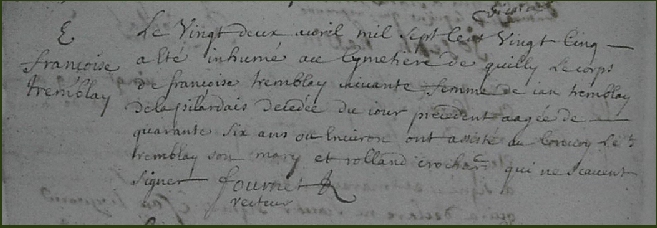 E
françoise
tremblay
Le Vingt deux avril mil sept cent Vingt Cinq
a esté inhumé au Cymetiere de quilly Le corps
de françoise tremblay vivante femme de ian tremblay
de la pilardais decedée du iour precedent aagée de
quarante six ans ou Environ ont assisté au Convoy Le d
tremblay son mary et rolland croch qui ne scavent
signer fournet
recteur